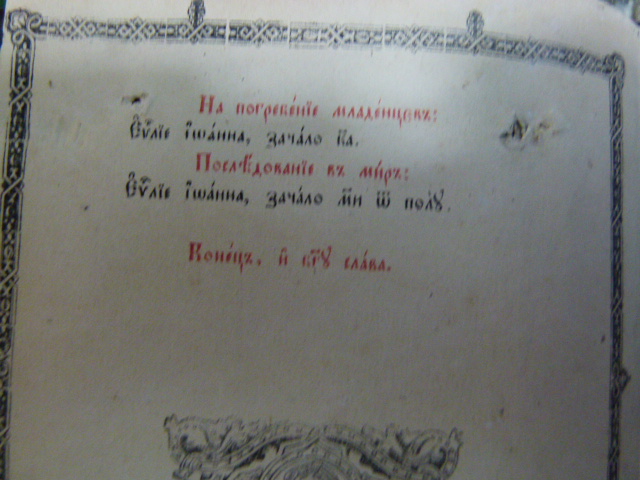 На погребе́нїе младе́нцевъ:
Є҆ѵⷢ҇лїе і҆ѡа́нна, зача́ло к҃а.
Послѣ́дованїе въ ми́ръ:
Є҆ѵⷢ҇лїе і҆ѡа́нна, зача́ло м҃и ѿ полꙋ̀.
Коне́цъ, и҆ бг҃ꙋ сла́ва.